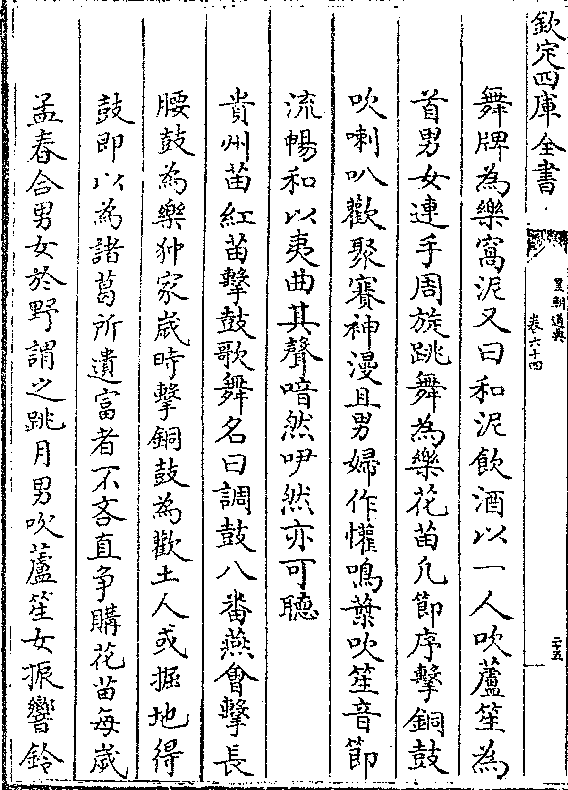 欽定四庫全書
皇朝通典
卷六十四
二十五
舞牌為樂窩泥又曰和泥飲酒以一人吹蘆笙為
首男女連手周旋跳舞為樂花苗凡節序擊銅鼓
吹喇叭歡聚賽神漫且男婦作懽鳴葉吹笙音節
流暢和以夷曲其聲喑然咿然亦可聽
貴州苗紅苗擊鼓歌舞名曰調鼓八番燕會擊長
腰鼓為樂狆家嵗時擊銅鼓為歡土人或掘地得
鼓即以為諸葛所遺富者不吝直争購花苗每嵗
孟春合男女於野謂之跳月男吹蘆笙女振響鈴